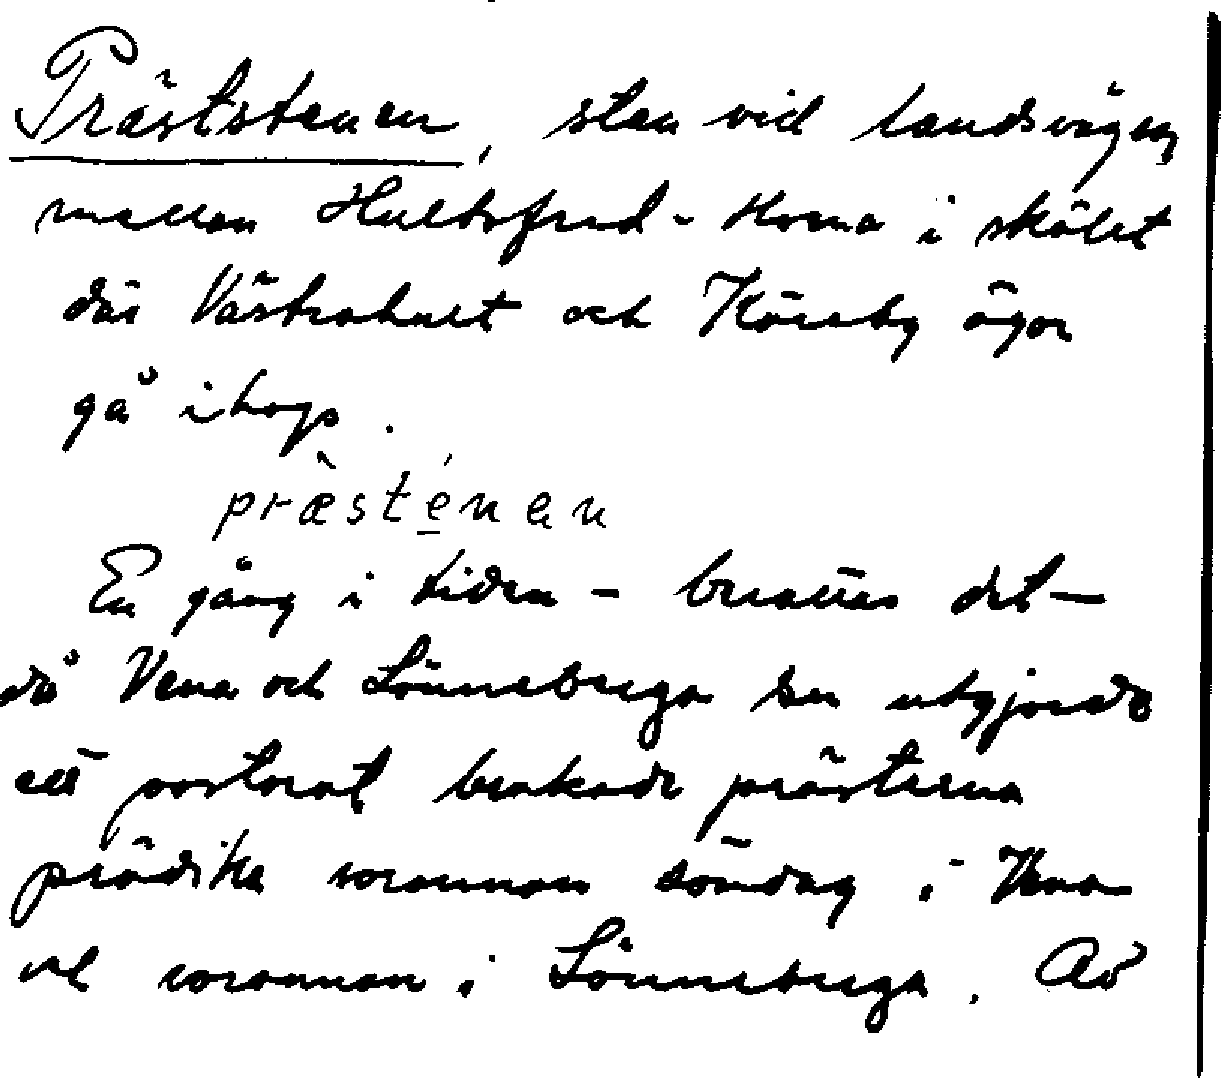 Präststenen, sten vid landsvägen
mellan Hultsfred - Vena i skälet
där Västrahult och Köreby ägor
gå ihop.
præsténen
En gång i tiden – berättas det –
då Vena och Lönneberga sn utgjorde
ett pastorat brukade prästerna
prädika varannan söndag i Vena
och varannan i Lönneberga. Av